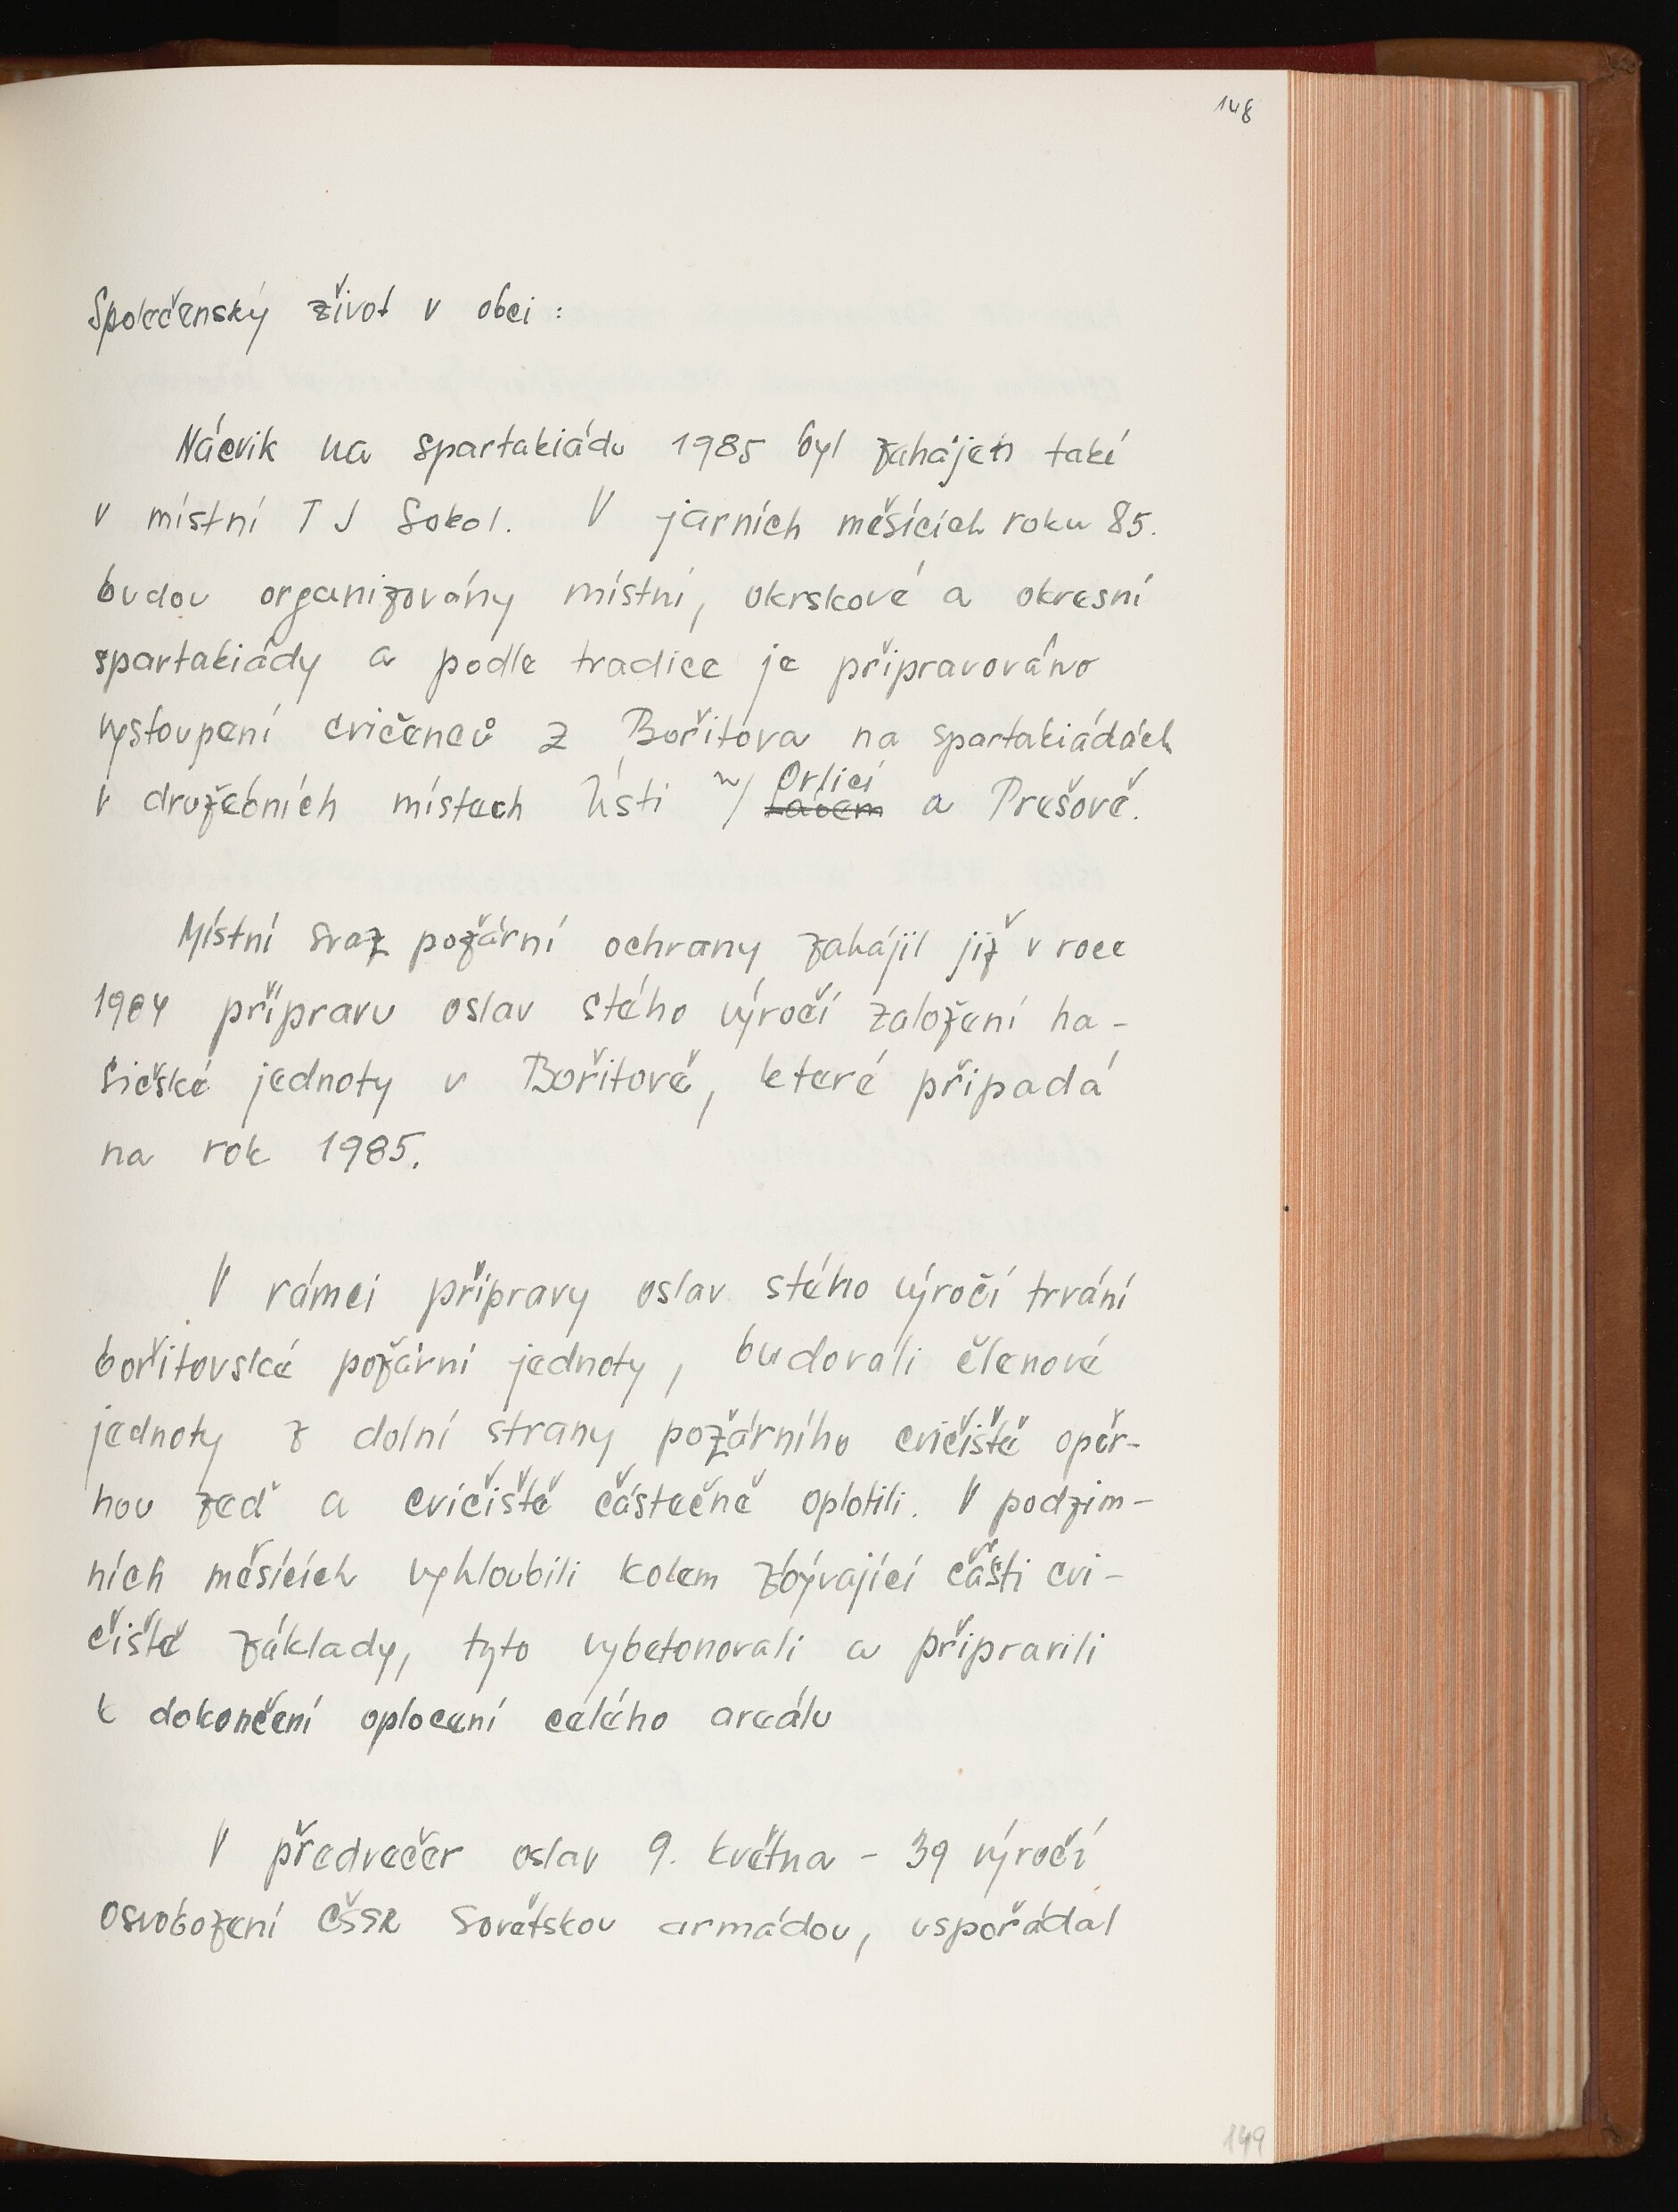 148
Společenský život v obci :
Nácvik na spartakiádu 1985 byl zahájen také
v místní TJ Sokol. V jarních měsících roku 85.
budou organizovány místní, okrskové a okresní
spartakiády a podle tradice je připravováno
vystoupení cvičenců z Bořitova na spartakiádách
v družebních místech Ústí n/ Labem Orlicí a Prešově.
Místní svaz požární ochrany zahájil již v roce
1984 přípravu oslav stého výročí založení ha-
sičské jednoty v Bořitově, které připadá
na rok 1985.
V rámci přípravy oslav stého výročí trvání
bořitovské požární jednoty, budovali členové
jednoty z dolní strany požárního cvičiště opěr-
nou zeď a cvičiště částečně oplotili. V podzim-
ních měsících vyhloubili kolem zbývající části cvi-
čiště základy, tyto vybetonovali a připravili
k dokončení oplocení celého areálu
V předvečer oslav 9. května - 39 výročí
osvobození ČSSR Sovětskou armádou, uspořádal
149